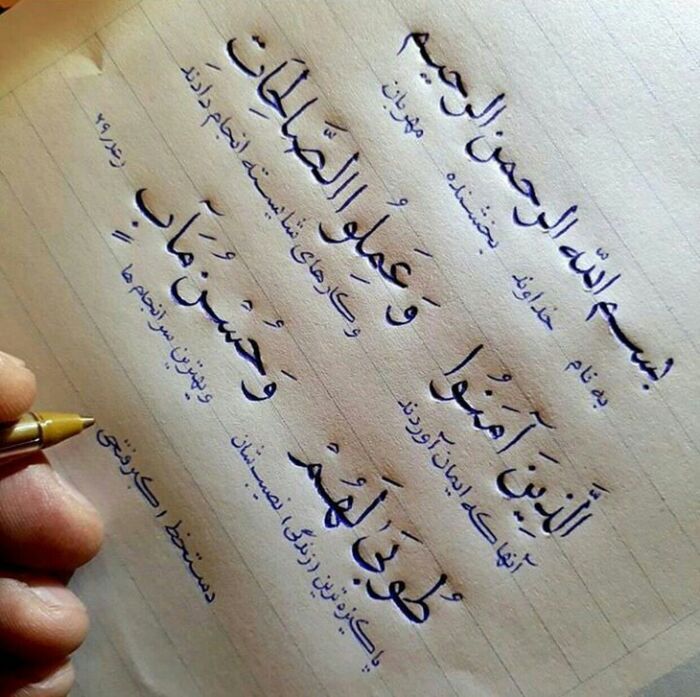 بسم الله الرحمن الرحیم
به نام خداوند بخشنده مهربان
الَّذِینَ آمَنُوا وَعَمِلُوا الصَّالِحَاتِ
آنها که ایمان آوردند و کارهای شایسته انجام دادند
طُوبَىٰ لَهُمْ وَحُسْنُ مَآبٍ
پاکیزه ترین (زندگی) نصیب شان و بهترین سرانجام ها
رعد، ۲۹
دستخط اکبر فتحی